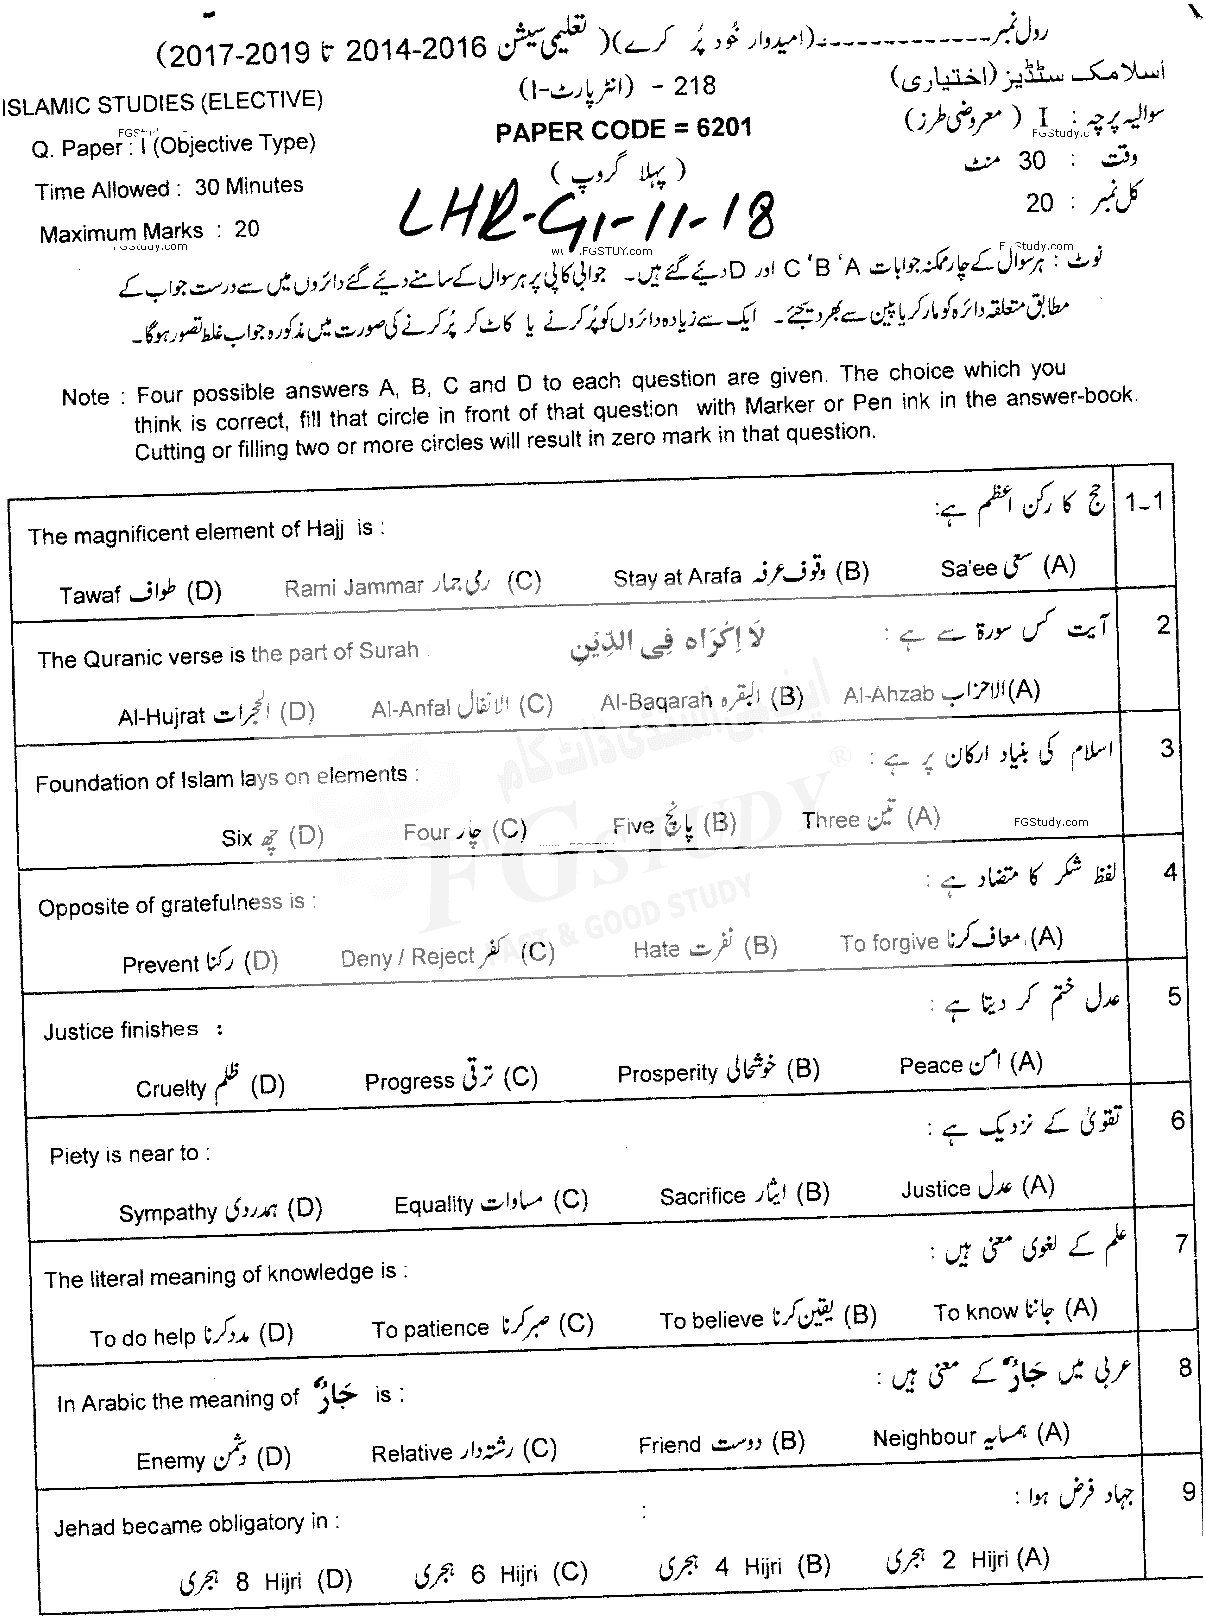 رول نمبر ---------------(امیدوار خود پُر کرے)( تعلیمی سیشن 2016-2014 تا 2019-2017)
اسلامک سٹڈیز (اختیاری)
218 - (انٹر پارٹ-I)
ISLAMIC STUDIES (ELECTIVE)
سوالیہ پرچہ : I ( معروضی طرز)
PAPER CODE = 6201
Q. Paper : I (Objective Type)
وقت : 30 منٹ
(پہلا گروپ)
Time Allowed : 30 Minutes
کل نمبر : 20
LHR-G1-11-18
Maximum Marks : 20
FGStudy.com
نوٹ : ہر سوال کے چار ممکنہ جوابات A ‘ B ‘ C اور D دیئے گئے ہیں۔ جوابی کاپی پر ہر سوال کے سامنے دیئے گئے دائروں میں سے درست جواب کے
مطابق متعلقہ دائرہ کو مارکر یا پین سے بھر دیجئے۔ ایک سے زیادہ دائروں کو پُر کرنے یا کاٹ کر پُر کرنے کی صورت میں مذکورہ جواب غلط تصور ہوگا۔
Note : Four possible answers A, B, C and D to each question are given. The choice which you
think is correct, fill that circle in front of that question with Marker or Pen ink in the answer-book.
Cutting or filling two or more circles will result in zero mark in that question.
1-1 حج کا رکن اعظم ہے:
The magnificent element of Hajj is :
(A) سعی Sa'ee (B) وقوف عرفہ Stay at Arafa (C) رمی جمار Rami Jammar (D) طواف Tawaf
2 آیت کس سورۃ سے ہے : لَا اِكْرَاهَ فِى الدِّيْنِ
The Quranic verse is the part of Surah
(A) الاحزاب Al-Ahzab (B) البقرہ Al-Baqarah (C) الانفال Al-Anfal (D) الحجرات Al-Hujrat
3 اسلام کی بنیاد ارکان پر ہے :
Foundation of Islam lays on elements :
(A) تین Three (B) پانچ Five (C) چار Four (D) چھ Six
FGStudy.com
4 لفظ شکر کا متضاد ہے :
Opposite of gratefulness is :
(A) معاف کرنا To forgive (B) نفرت Hate (C) کفر Deny / Reject (D) رکنا Prevent
5 عدل ختم کر دیتا ہے :
Justice finishes :
(A) امن Peace (B) خوشحالی Prosperity (C) ترقی Progress (D) ظلم Cruelty
6 تقویٰ کے نزدیک ہے :
Piety is near to :
(A) عدل Justice (B) ایثار Sacrifice (C) مساوات Equality (D) ہمدردی Sympathy
7 علم کے لغوی معنی ہیں :
The literal meaning of knowledge is :
(A) جاننا To know (B) یقین کرنا To believe (C) صبر کرنا To patience (D) مدد کرنا To do help
8 عربی میں جَارٌ کے معنی ہیں :
In Arabic the meaning of جَارٌ is :
(A) ہمسایہ Neighbour (B) دوست Friend (C) رشتہ دار Relative (D) دشمن Enemy
9 جہاد فرض ہوا :
Jehad became obligatory in :
(A) 2 Hijri ہجری (B) 4 Hijri ہجری (C) 6 Hijri ہجری (D) 8 Hijri ہجری
ایف جی اسٹڈی ڈاٹ کام
FGSTUDY ®
FAST & GOOD STUDY